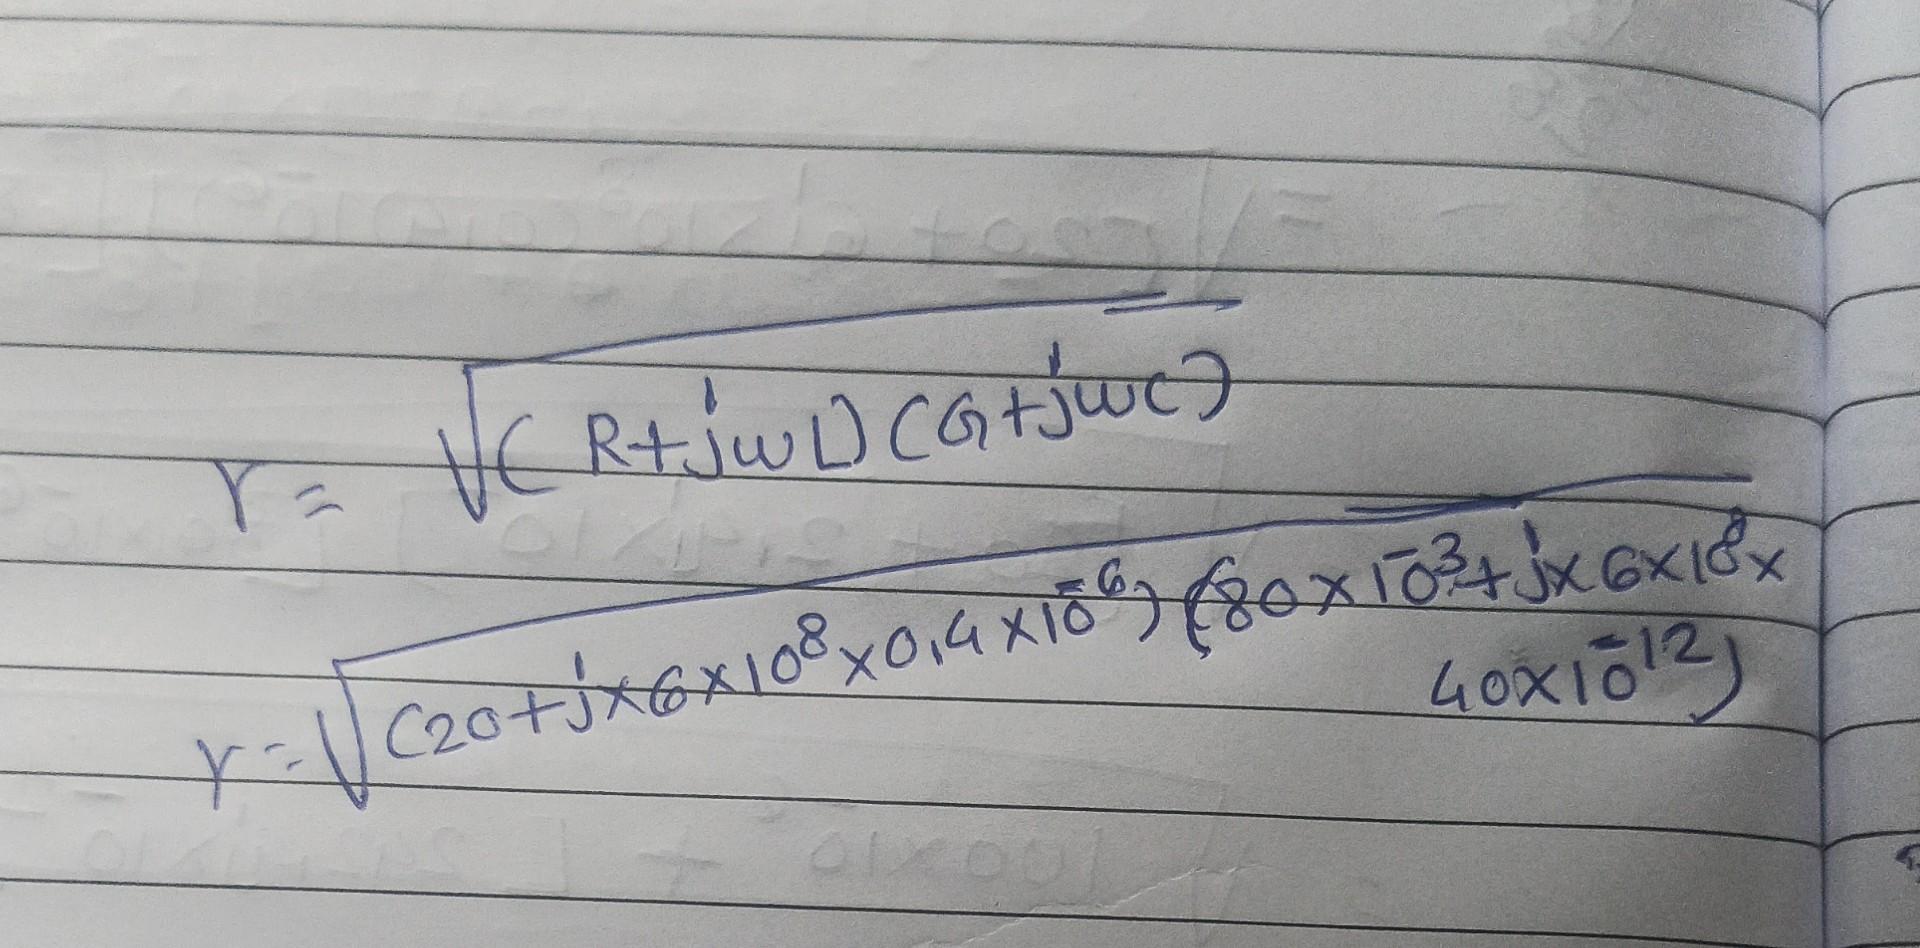 γ = √(R+jωL)(G+jωC)
γ = √(20+j×6×10⁸×0.4×10⁻⁶)(80×10⁻³+j×6×10⁸×
40×10⁻¹²)